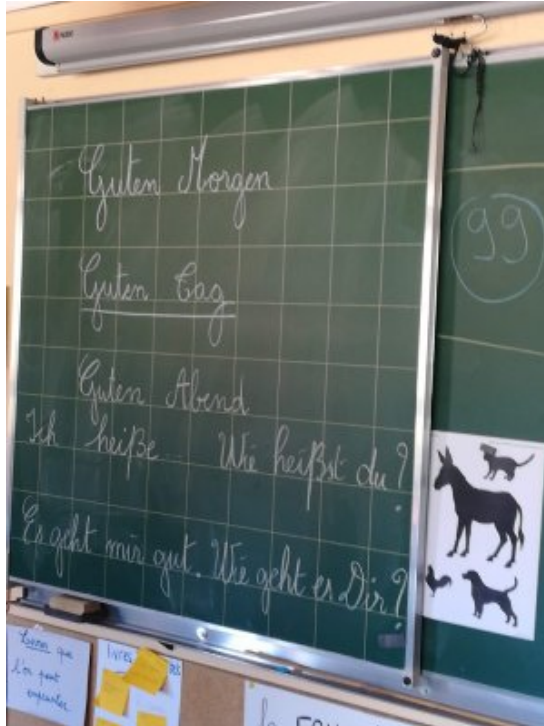 Guten Morgen
Guten Tag
Guten Abend
Ich heiße... Wie heißst du?
Es geht mir gut. Wie geht es Dir?
99
Livres que
l'on peut
emprunter
LIVRES